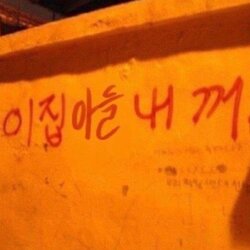 이집아들 내 꺼